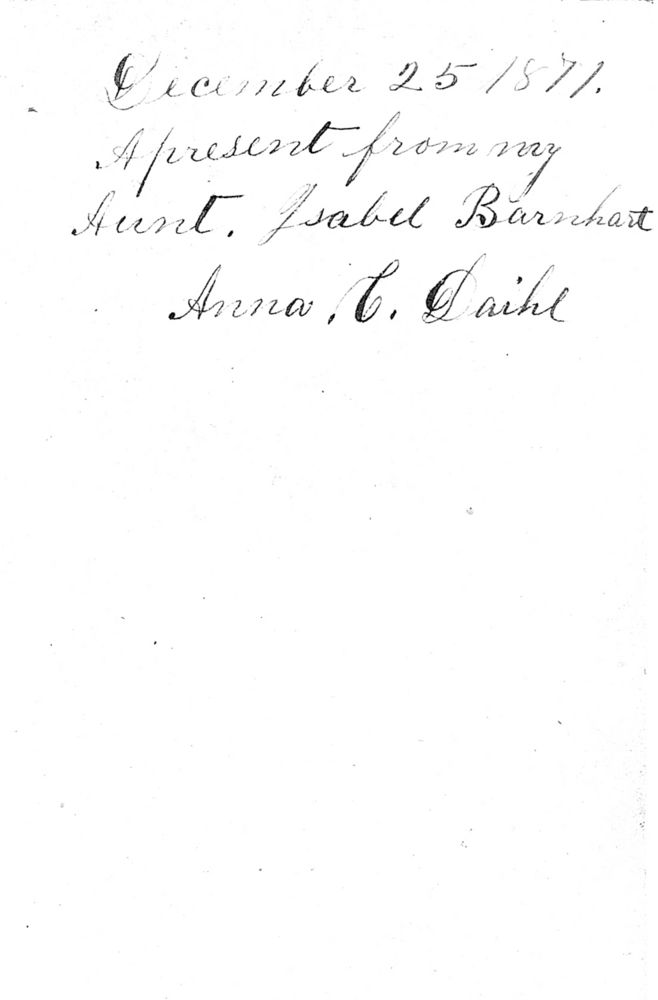 December 25 1871.
A present from my
Aunt. Isabel Barnhart
Anna. C. Daihl